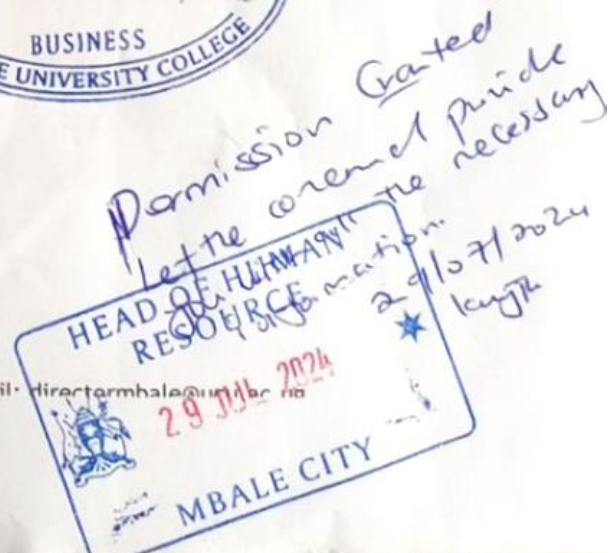 BUSINESS
E UNIVERSITY COLLEGE
Permission Granted
"Let the concerned provide
the necessary
information.
29/07/2024
HEAD OF HUMAN
RESOURCE
29 JUL 2024
MBALE CITY